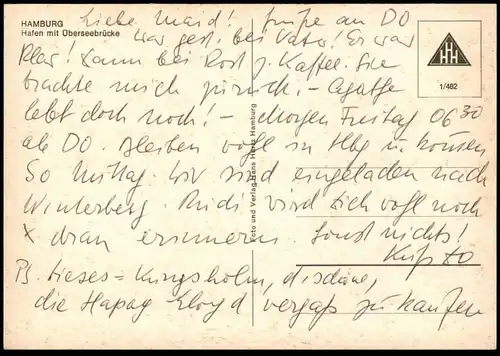 HAMBURG
Hafen mit Überseebrücke
Liebe Maid! Grüße an DO
War gest. bei Vater! Er war
klar! Dann bei Rost z. Kaffee. Sie
brachte mich zurück - Agathe
lebt doch noch! - Morgen Freitag 06 30
ab DO. bleiben vogl in Hbg in
So Mittag. Wir sind eingeladen nach
Winterberg. wird sich vogl noch
x dran erinnern. Sonst nichts!
Kuß
PS. Dieses = Kungsholm, d. schöne,
die Hapag Lloyd vergaß zu kaufen
Foto und Verlag Hans Hartz Hamburg
HHH
1/482